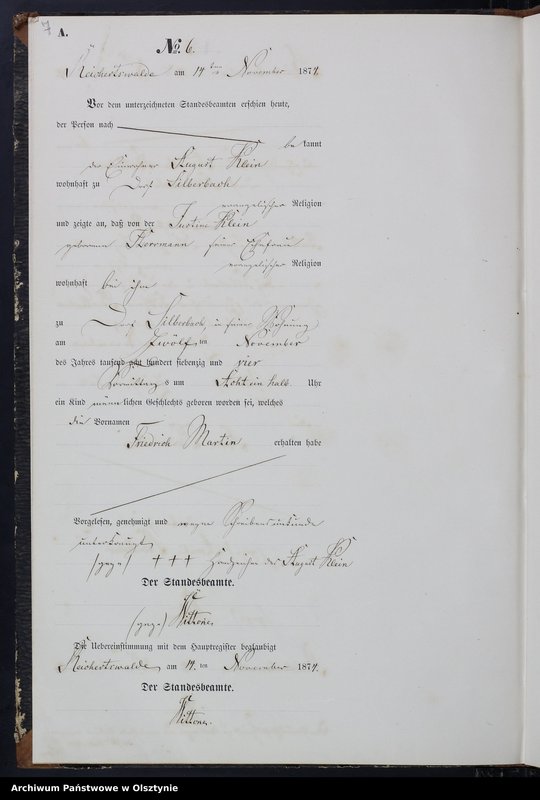 A.
No. 6.
Reichertswalde am 14ten November 1874.
Vor dem unterzeichneten Standesbeamten erschien heute,
der Person nach
bekannt
der Einwohner August Klein
wohnhaft zu Dorf Silberbach
evangelischer Religion
und zeigte an, daß von der Justine Klein
geborenen Herrmann seiner Ehefrau
evangelischer Religion
wohnhaft bei ihm
zu Dorf Silberbach, in seiner Wohnung
am Zwölften November
des Jahres tausend acht hundert siebenzig und vier
Vormittags um Acht ein halb Uhr
ein Kind männlichen Geschlechts geboren worden sei, welches
die Vornamen
Friedrich Martin erhalten habe
Vorgelesen, genehmigt und wegen Schreibensunkunde
unterkreuzt
(gez.) +++ Handzeichen des August Klein
Der Standesbeamte.
(gez.)
Die Uebereinstimmung mit dem Hauptregister beglaubigt
Reichertswalde am 14.ten November 1874.
Der Standesbeamte.
Archiwum Państwowe w Olsztynie